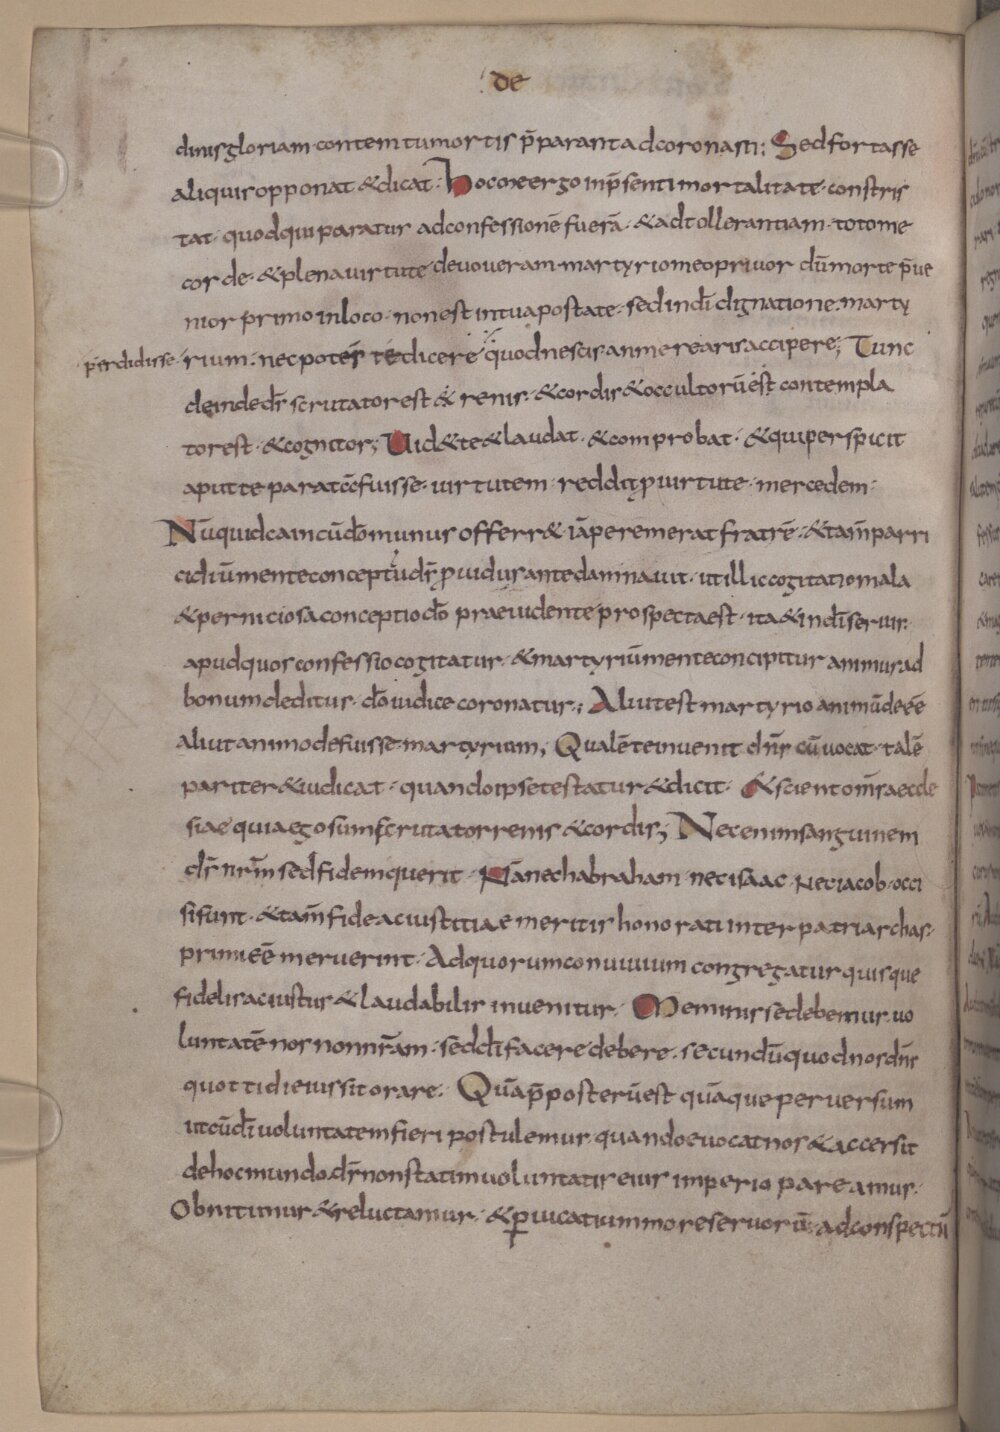 de
diuis gloriam contemtu mortis p̄parant ad coronam; Sed fortasse
aliquis opponat & dicat. Hoc me ergo in p̄senti mortalitate constris
tat. quod qui paratus ad confessionē fuerā. & ad tollerantiam toto me
corde. & plena uirtute deuoueram martyrio meo priuor dū morte p̄ue
nior primo in loco non est in tua potestate. sed in dī dignatione marty
perdidisse rium. nec potes te dicere quod nescis an merearis accipere; Tunc
deinde ds̄ scrutator est & renis. & cordis & occultorū est contempla
tor est. & cognitor; Uid& te & laudat. & comprobat. & qui perspicit
aput te paratā fuisse uirtutem reddit p uirtute mercedem.
Nūquid cain cū dō munus offerr& iā peremerat fratrē. & tam̄ parri
cidiū mente conceptū ds̄ puidus ante damnauit. ut illic cogitatio mala
& perniciosa conceptio dō praeuidente prospecta est. ita & in dī seruis
apud quos confessio cogitatur. & martyriū mente concipitur animus ad
bonum deditus. dō iudice coronatur; Aliut est martyrio animū deeē
aliut animo defuisse martyrium; Qualē te inuenit dn̄s cū uocat. talē
pariter & iudicat. quando ipse testatur & dicit. & scient om̄s aeccle
siae quia ego sum scrutator renis & cordis; Nec enim sanguinem
ds̄ nr̄m sed fidem querit. Nā nec habraham nec isaac. Nec iacob. occi
si sunt. & tam̄ fide ac iustitiae meritis honorati inter patriarchas.
primi eē meruerint. Ad quorum conuiuium congregatur quisque
fidelis ac iustus & laudabilis inuenitur. Meminisse debemus uo
luntatē nos non nr̄am. sed dī facere debere. secundū quod nos dn̄s
quottidie iussit orare. Quā p̄posterū est quāque peruersum
ut cū dī uoluntatem fieri postulemus quando euocat nos & accersit
de hoc mundo. ds̄ non statim uoluntatis eius imperio pareamus.
Obnitimur & reluctamur. & puicatium more seruorū. ad conspectū